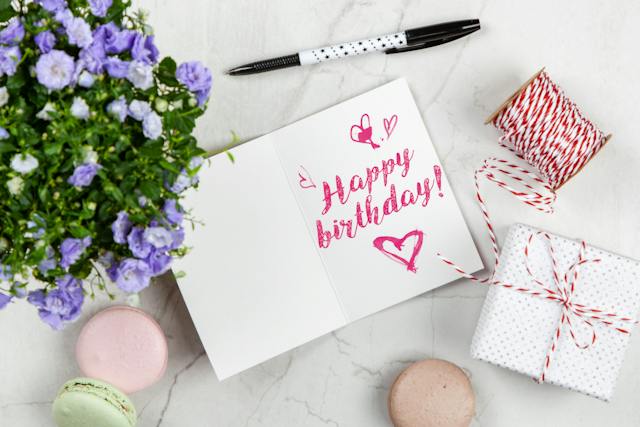 Happy
birthday!